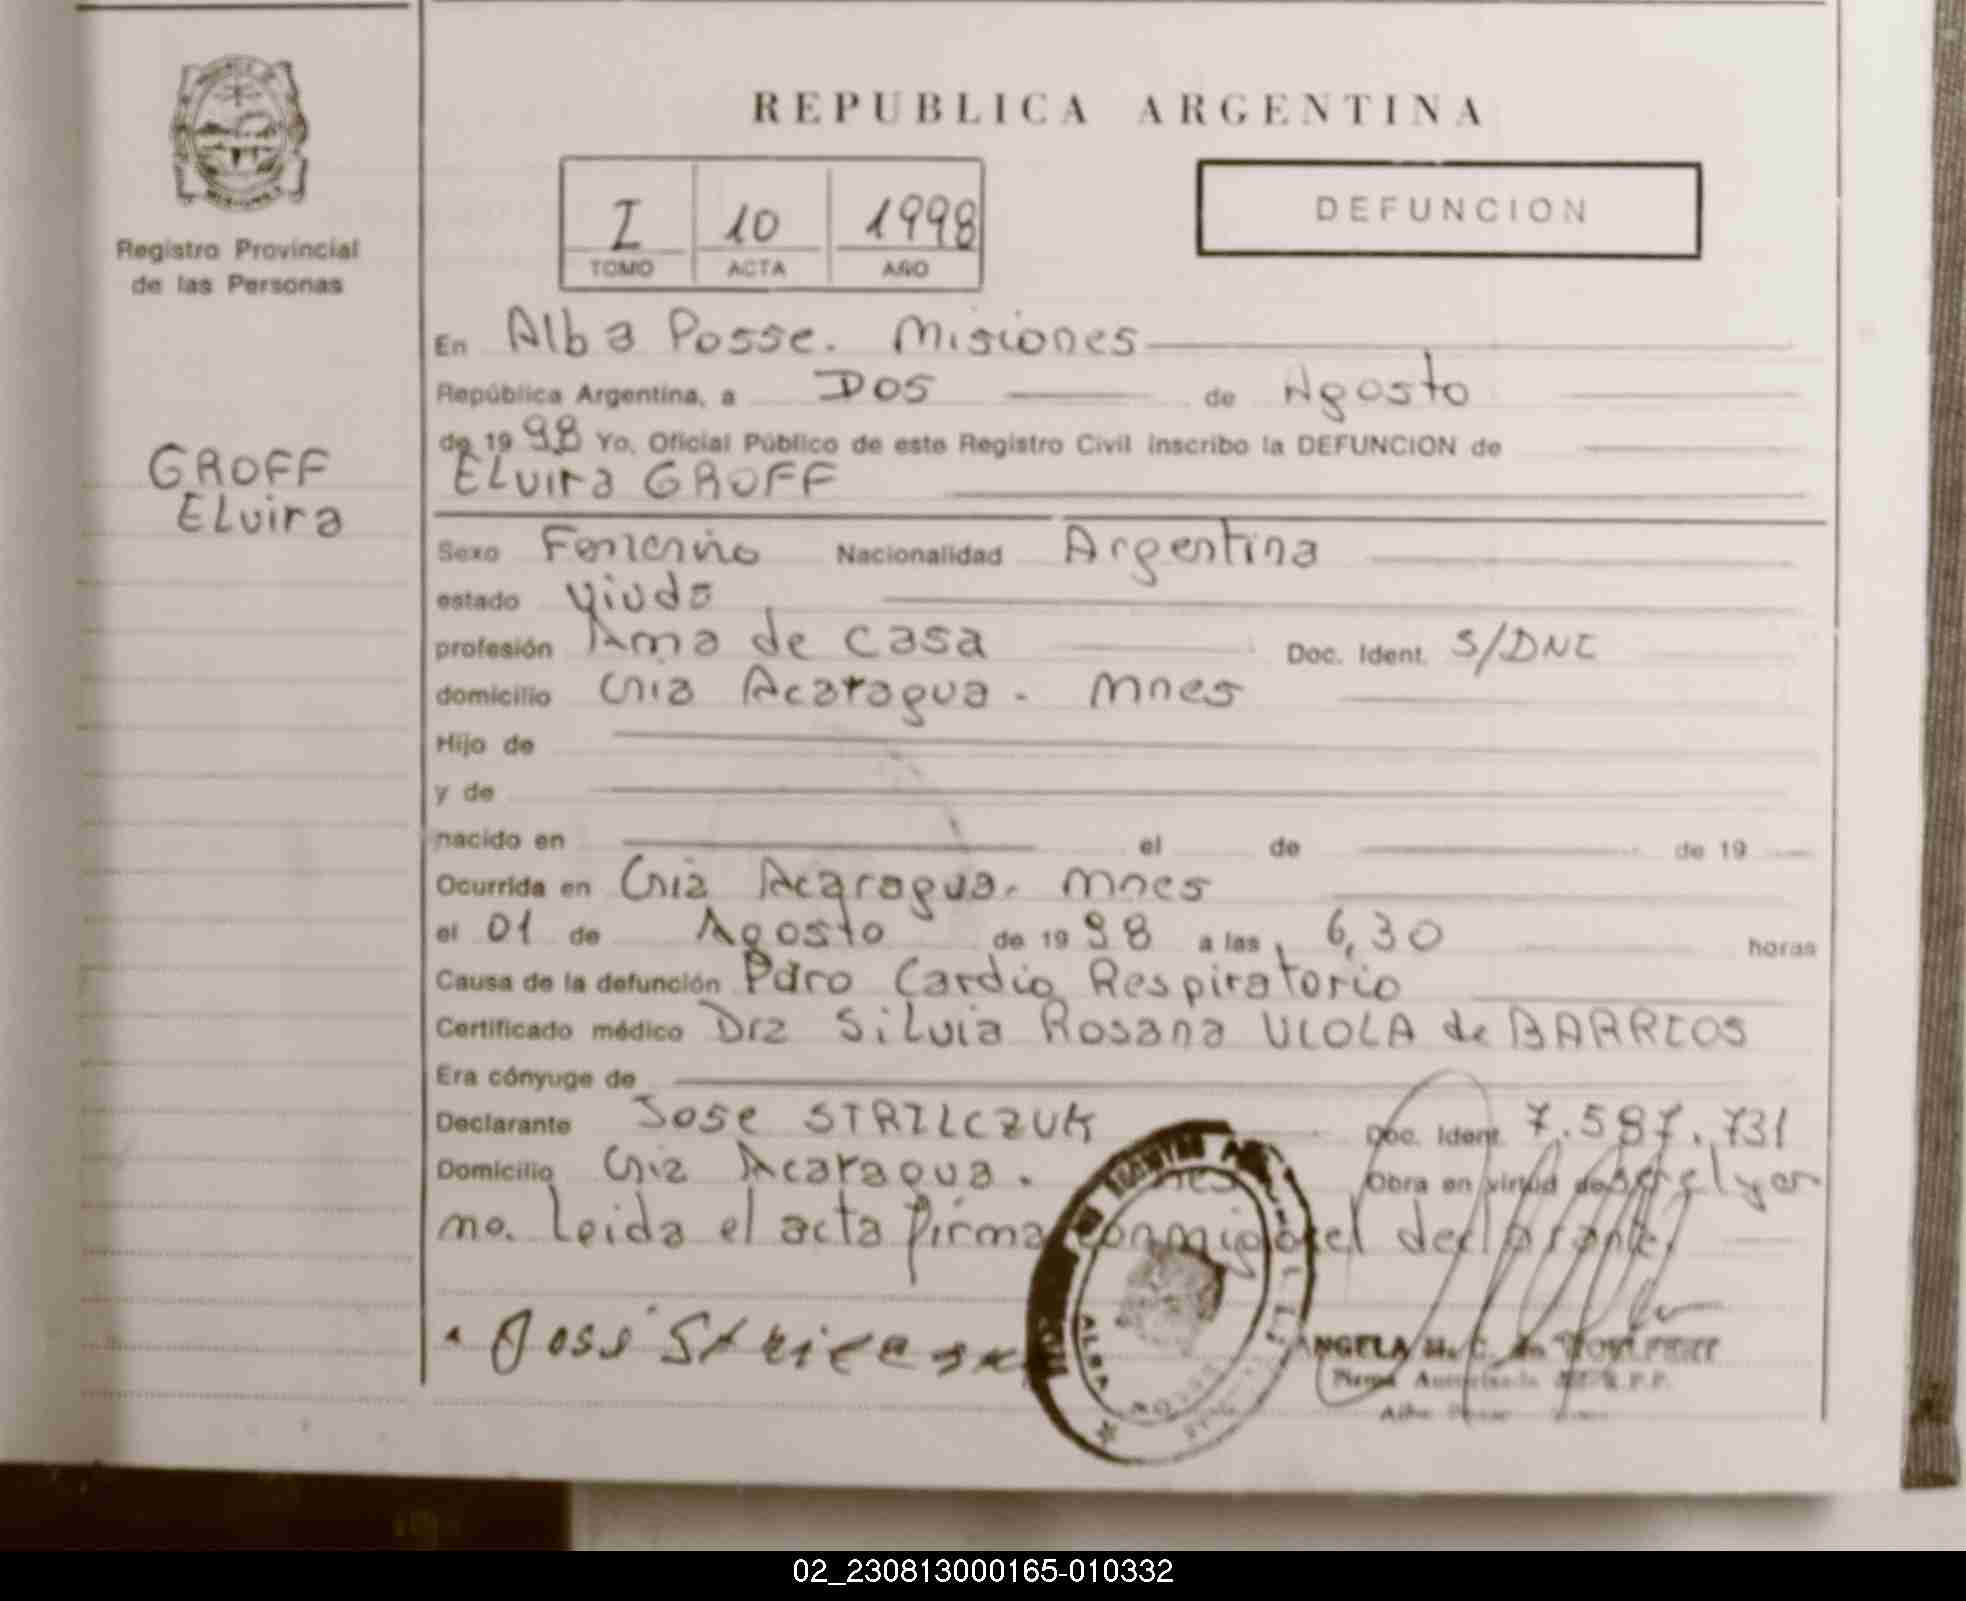 REPUBLICA ARGENTINA
I 10 1998
TOMO ACTA AÑO
DEFUNCION
Registro Provincial
de las Personas
GROFF
ELvira
En Alba Posse. Misiones
República Argentina, a DOS de Agosto
de 1998 Yo, Oficial Público de este Registro Civil inscribo la DEFUNCION de
ELvira GROFF
Sexo Femenino Nacionalidad Argentina
estado Viuda
profesión Ama de casa Doc. Ident. S/DNI
domicilio Cnia Acaragua. Mnes
Hijo de
y de
nacido en el de de 19
Ocurrida en Cnia Acaragua. Mnes
el 01 de Agosto de 1998 a las 6,30 horas
Causa de la defunción Paro Cardio Respiratorio
Certificado médico Dra Silvia Rosana VIOLA de BARRIOS
Era cónyuge de
Declarante Jose STRILCZUK Doc. Ident. 7.587.731
Domicilio Cnia Acaragua. Mnes Obra en virtud de ser el yer
no. Leida el acta firma conmigo el declarante
José
ANGELA
Firma Autorizada R.P.P.
Alba Posse
02_230813000165-010332